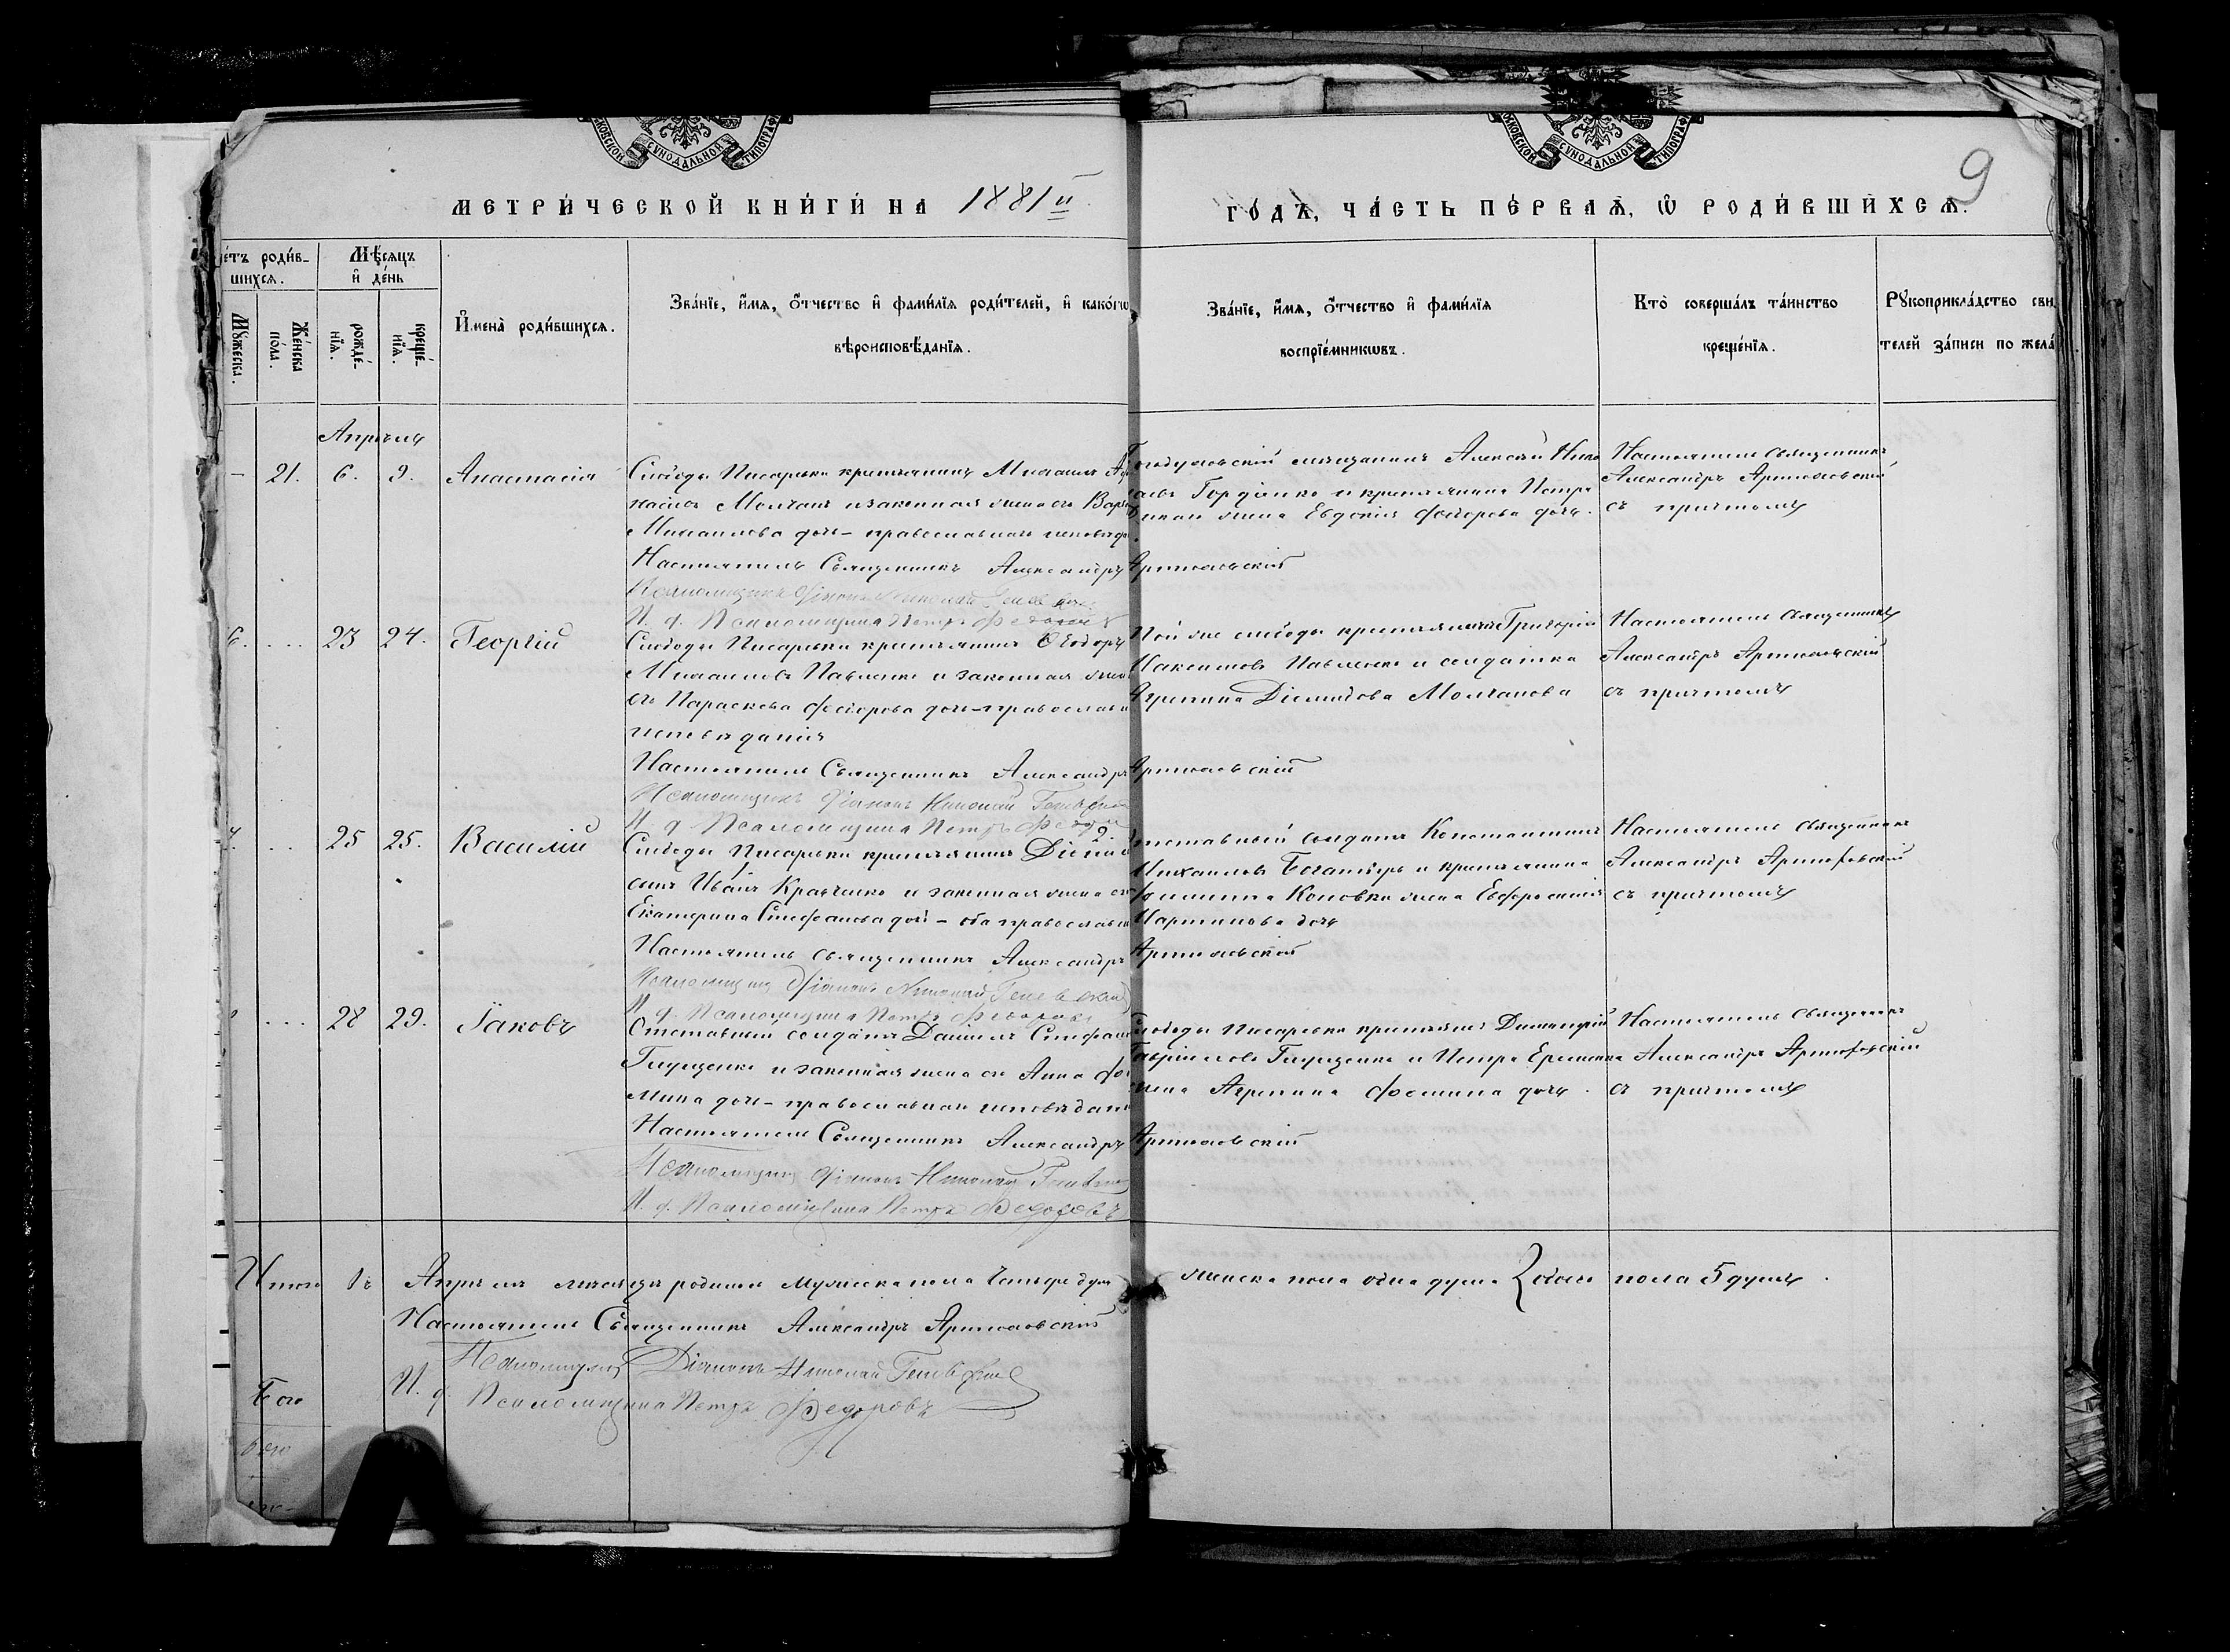 МОСКОВСКОЙ СУНОДАЛЬНОЙ ТИПОГРАФ
МОСКОВСКОЙ СУНОДАЛЬНОЙ ТИПОГРАФ
9
МЕТРИ́ЧЕСКОЙ КНИ́ГИ НА 1881й
ГО́ДЪ, ЧА́СТЬ ПЕ́РВАѦ, Ѽ РОДИ́ВШИХСѦ.
е́тъ роди́в-
шихсѧ.
Мѣ́сѧцъ
и҆ де́нь
Мꙋ́жеска.
Же́нска
по́ла.
рожде́-
нїѧ.
креще́-
нїѧ.
И҆мена̀ роди́вшихсѧ.
Зва́нїе, и҆́мѧ, ѻ҆́тчество и҆ фами́лїѧ роди́телей, и҆ како́гѡ
вѣроисповѣ́данїѧ.
Зва́нїе, и҆́мѧ, ѻ҆́тчество и҆ фами́лїѧ
воспрїе́мникѡвъ.
Кто̀ соверша́лъ та́инство
креще́нїѧ.
Рꙋкоприкла́дство сви
телей за́писи по жела́
Апрѣль
– 21. 6. 9. Анастасія
Слободы Писаревки крестьянинъ Михаилъ
Молчанъ и законная жена его
Михаилова дочь – православнаго
Настоятель Священникъ Александръ Артюховскій
Псаломщикъ Діаконъ Николай
И. д. Псаломщика Петръ Федоровъ
мѣщанинъ Алексѣй
Гордіенко и крестьянина Петра
жена Евдокія Федорова дочь.
Настоятель Священникъ
Александръ Артюховскій
съ причтомъ
6. ... 23 24. Георгій
Слободы Писаревки крестьянинъ Ѳеодоръ
Михаиловъ Павленко и законная жена
его Параскева Федорова дочь – православн
исповѣданія
Настоятель Священникъ Александръ Артюховскій
Псаломщикъ Діаконъ Николай
И. д. Псаломщика Петръ
Той же слободы крестьянинъ Григорій
Максимовъ Павленко и солдатка
Агрепина Діомидова Молчанова
Настоятель Священникъ
Александръ Артюховскій
съ причтомъ
7. .. 25 25. Василій
Слободы Писаревки крестьянинъ
Иванъ Кравченко и законная жена его
Екатерина Стефанова дочь – оба православн
Настоятель Священникъ Александръ Артюховскій
Псаломщикъ Діаконъ Николай
И. д. Псаломщика Петръ Федоровъ
Отставный солдатъ Константинъ
Михаиловъ Богатырь и крестьянина
Коновки жена Евфросинія
Мартинова дочь
Настоятель Священникъ
Александръ Артюховскій
съ причтомъ
... 28 29. Іаковъ
Отставный солдатъ Даніилъ Стефан
Глущенко и законная жена его Анна Фо
мина дочь – православнаго исповѣдан
Настоятель Священникъ Александръ Артюховскій
Псаломщикъ Діаконъ Николай
И. д. Псаломщика Петръ Федоровъ
Слободы Писаревки крестьянинъ Димитрій
Гавріиловъ Глущенко и Петра Еременка
жена Агрепина Фомина дочь.
Настоятель Священникъ
Александръ Артюховскій
съ причтомъ
Итого въ Апрѣлѣ мѣсяцѣ родилось мужеска пола четыре души
женска пола одна душа обоего пола 5 душъ.
Настоятель Священникъ Александръ Артюховскій
Псаломщикъ Діаконъ Николай
И. д. Псаломщика Петръ Федоровъ